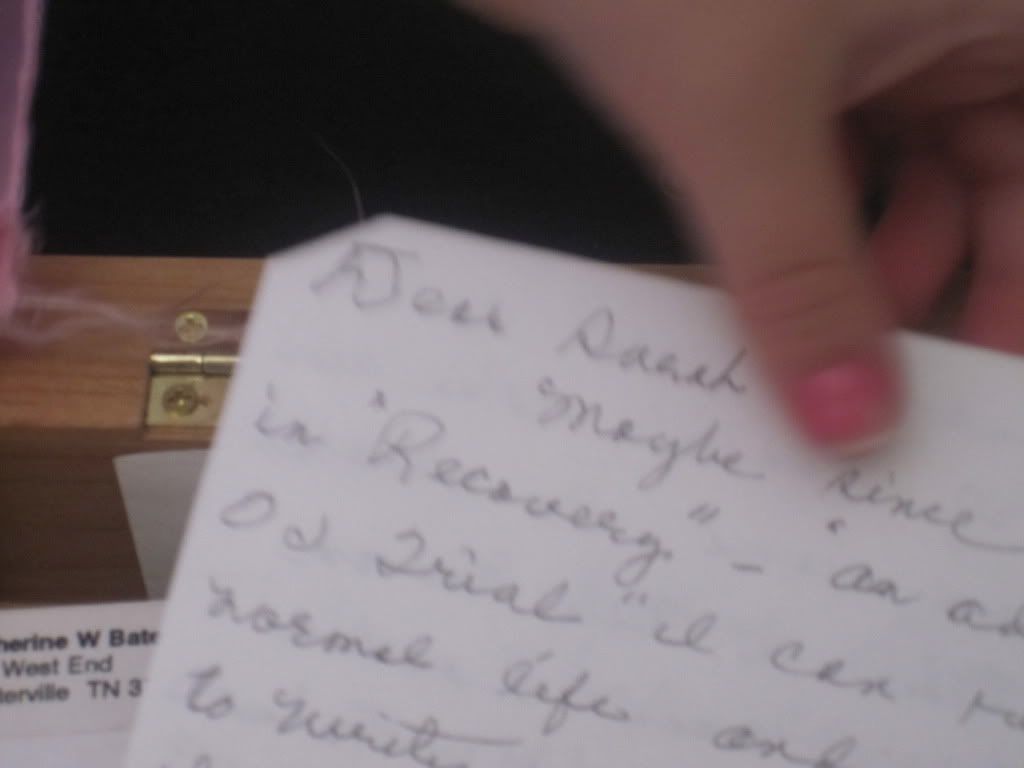 Dear Sarah
"Maybe since
in "Recovery." – "an ad
Od Trial" I can
normal life and
to write
herine W Bate
West End
terville TN 3